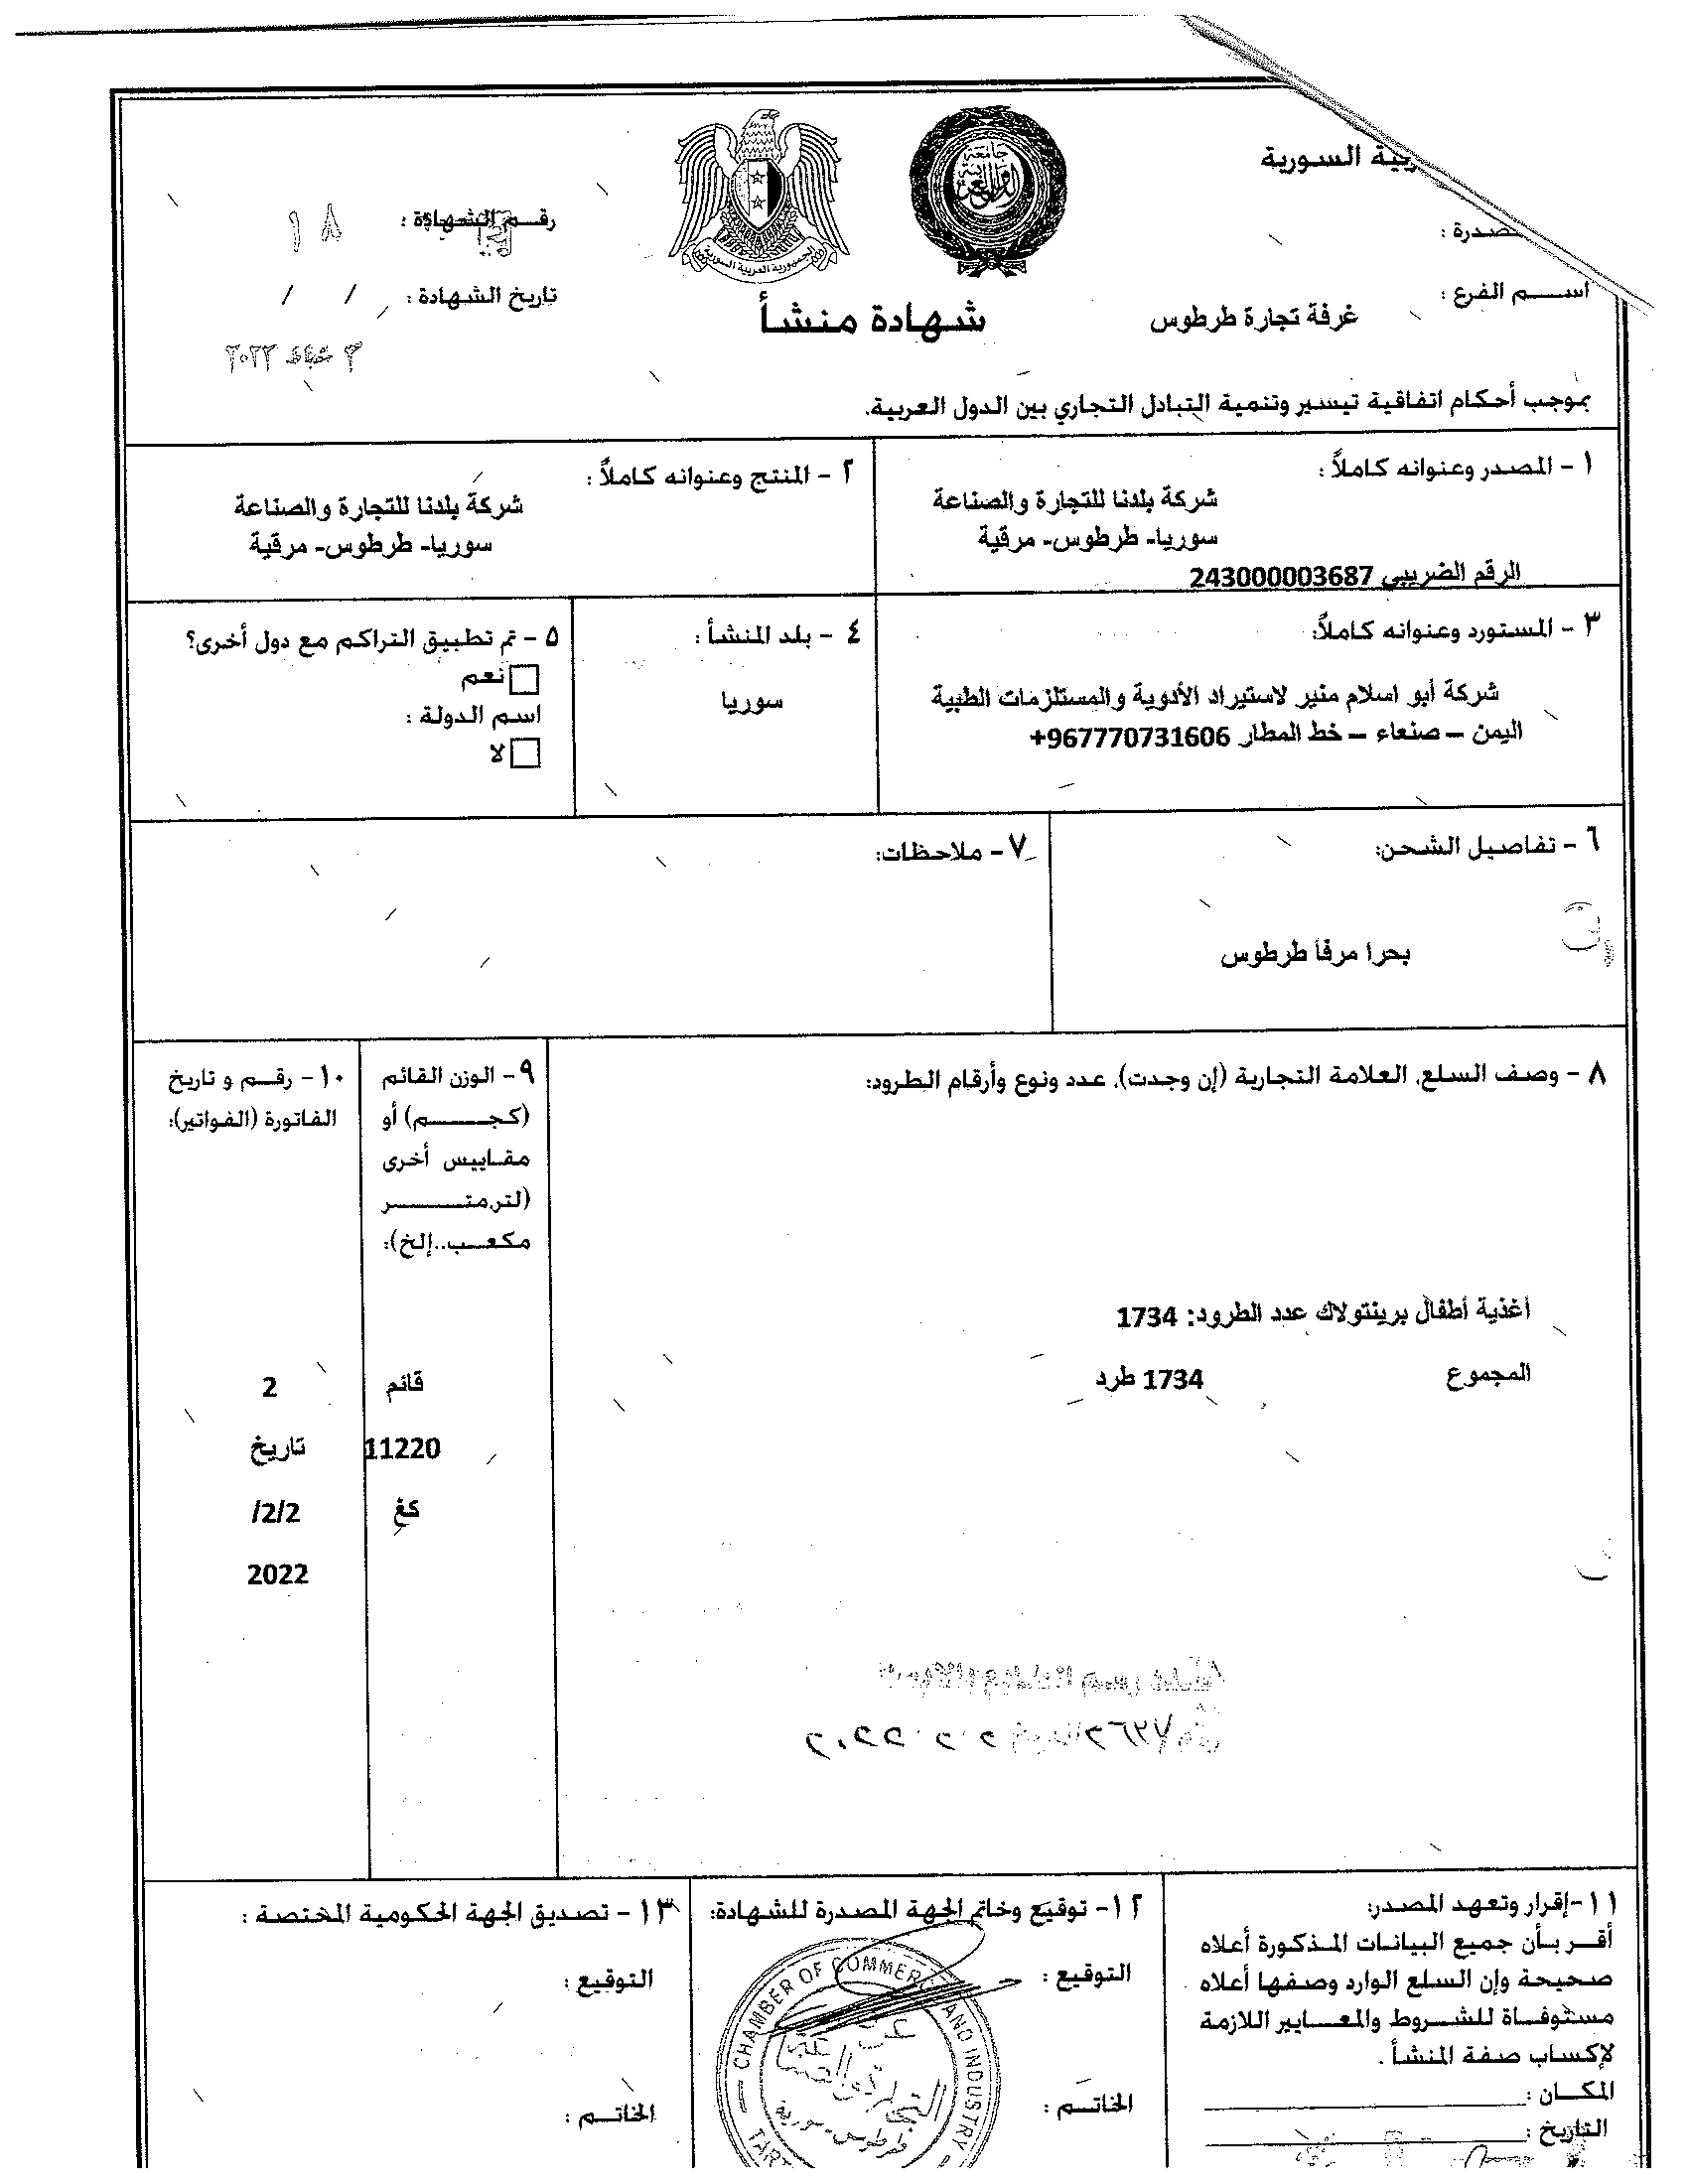 السورية
اســـم الفرع :
غرفة تجارة طرطوس
شهادة منشأ
الجمهورية العربية السورية
رقـم الشهادة :
١٨
تاريخ الشهادة : / /
٣ شباط ٢٠٢٢
بموجب أحكام اتفاقية تيسير وتنمية التبادل التجاري بين الدول العربية.
١ - المصدر وعنوانه كاملاً :
شركة بلدنا للتجارة والصناعة
سوريا- طرطوس- مرقية
الرقم الضريبي 243000003687
٢ - المنتج وعنوانه كاملاً :
شركة بلدنا للتجارة والصناعة
سوريا- طرطوس- مرقية
٣ - المستورد وعنوانه كاملاً:
شركة أبو اسلام منير لاستيراد الأدوية والمستلزمات الطبية
اليمن – صنعاء – خط المطار 967770731606+
٤ - بلد المنشأ :
سوريا
٥ - تم تطبيق التراكم مع دول أخرى؟
نعم
اسم الدولة :
لا
٦ - تفاصيل الشحن:
بحرا مرفأ طرطوس
٧ - ملاحظات:
٨ - وصف السلع، العلامة التجارية (إن وجدت)، عدد ونوع وأرقام الطرود:
أغذية أطفال برينتولاك عدد الطرود: 1734
المجموع 1734 طرد
٩ - الوزن القائم
(كجـــــم) أو
مقاييس أخرى
(لتر,متـــــر
مكعـب..إلخ):
قائم
11220
كغ
١٠ - رقـم و تاريخ
الفاتورة (الفواتير):
2
تاريخ
2/2/
2022
١١-إقرار وتعهد المصدر:
أقـر بـأن جميع البيانـات المـذكورة أعلاه
صحيحة وإن السلع الوارد وصفها أعلاه
مستوفـاة للشـروط والمعـايير اللازمة
لإكساب صفة المنشأ .
المكـان :
التاريخ :
١٢- توقيع وخاتم الجهة المصدرة للشهادة:
التوقيع :
الخاتـم :
CHAMBER OF COMMERCE AND INDUSTRY
طرطوس - سورية
١٣ - تصديق الجهة الحكومية المختصة :
التوقيع :
الخاتـم :